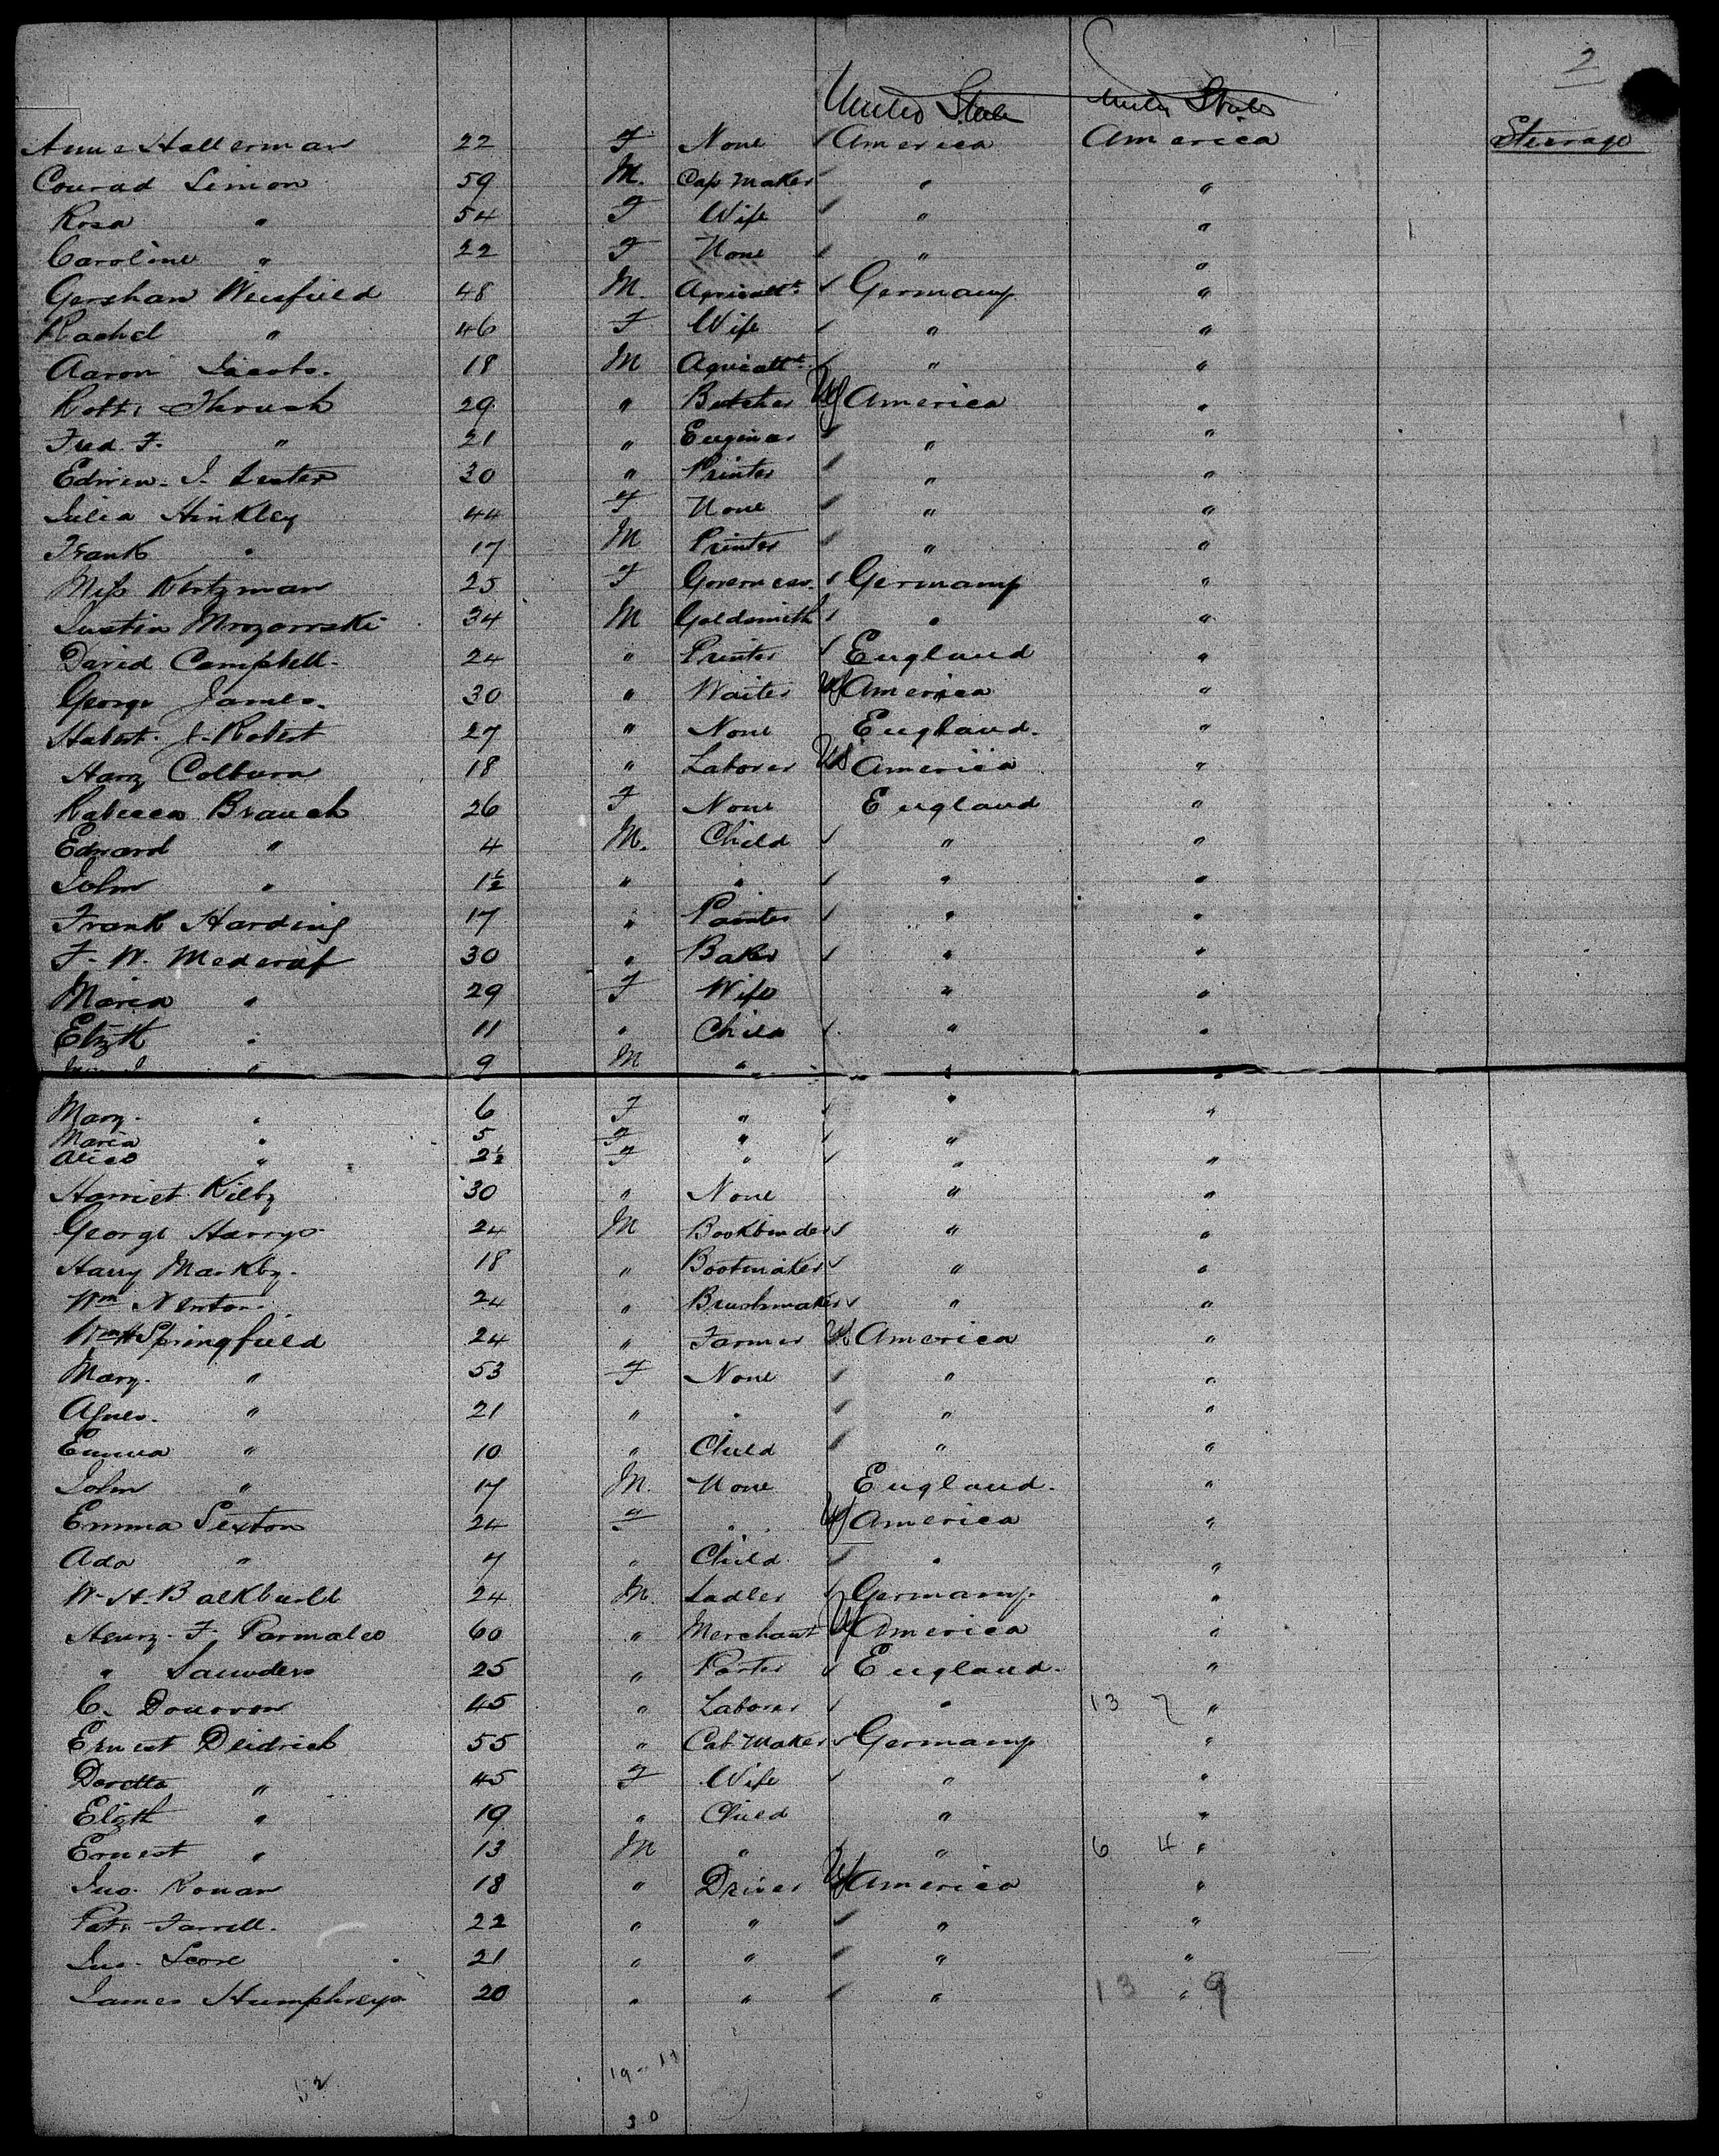 2
United State United States
Anna Hallerman 22 F None America America Steerage
Conrad Simon 59 M. Cap Maker " "
Rosa " 54 F Wife " "
Caroline " 22 F None " "
Gershan Weisfield 48 M. Agricultt. Germany "
Rachel " 46 F Wife " "
Aaron Jacobs. 18 M Agricultt. " "
Robt. Thrush 29 " Butcher US America "
Fred. F. " 21 " Engineer " "
Edwin. J. Lester 30 " Printer " "
Julia Hinkley 44 F None " "
Frank " 17 M Printer " "
Miss Kertzman 25 F Governess. Germany "
Justin Mrozowski 34 M Goldsmith " "
David Campbell. 24 " Printer England "
George James. 30 " Waiter US America "
Hubert. J. Robert 27 " None England. "
Harry Colburn 18 " Laborer US America "
Rebecca Branch 26 F None England "
Edward " 4 M. Child " "
John " 1½ " " " "
Frank Harding 17 " Painter " "
F. W. Medcraf 30 " Baker " "
Maria " 29 F Wife " "
Elizth " 11 " Child " "
" 9 M " " "
Mary. " 6 F " " "
Maria " 5 F " "
Alice " 2½ F " " "
Harriet Kilby 30 " None " "
George Harrys 24 M Bookbinder " "
Harry Markby. 18 " Bootmaker " "
Wm Newton. 24 " Brushmaker " "
Wm H Springfield 24 " Farmer US America "
Mary. " 53 F None " "
Agnes. " 21 " " " "
Emma " 10 " Child " "
John " 17 M. None England. "
Emma Sexton 24 F " US America "
Ada " 7 " Child " "
W. H. 24 M. Sadler Germany. "
Henry. F. Parmalee 60 " Merchant US America "
" Saunders 25 " Porter England. "
C. Donovan 45 " Laborer " 13 7 "
Ernest Deidrich 55 " Cab. Maker Germany "
Doretta " 45 F Wife " "
Elizth " 19 " Child " "
Ernest " 13 M " " 6 4 "
Jno. Ronan 18 " Driver US America "
Pat. Farrell. 22 " " " "
Jno. 21 " " " "
James Humphreys 20 " " " 13 " 9
52 19-11
30